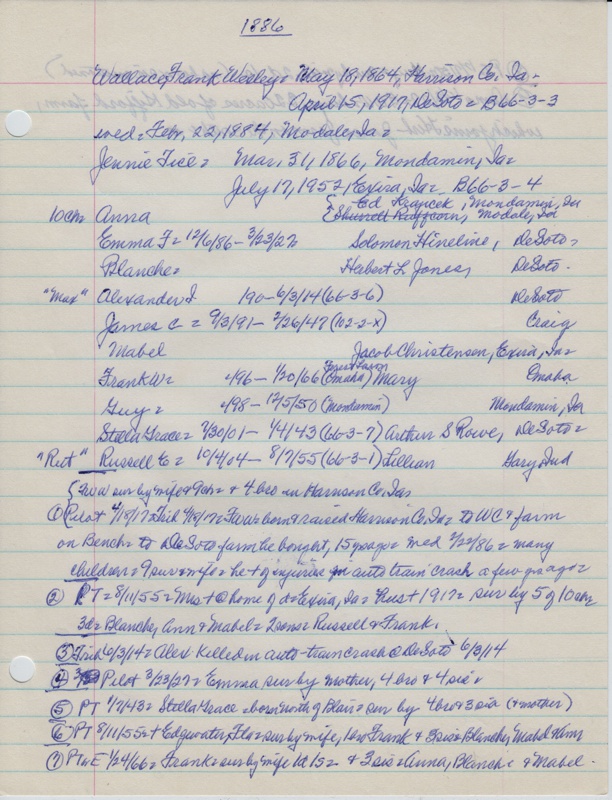 1886
Wallace, Frank Wesley = May 18, 1864, Harrison Co. Ia =
April 15, 1917, DeSoto = B66-3-3
wed = Feb, 22, 1884, Modale, Ia =
Jennie Tice = Mar. 31, 1866, Mondamin, Ia =
July 17, 1952, Exira, Ia = B66-3-4
{ Ed Krajicek, Mondamin, Ia
10ch = Anna { Modale, Ia
Emma F = 12/6/86 - 3/23/27 Solomon Hineline, DeSoto =
Blanche = Hebert L Jones, DeSoto.
"Max" Alexander J 190 - 6/3/14 (66-3-6) DeSoto
James C = 9/3/91 - 2/26/47 (102-2-X) Craig
Mabel Jacob Christensen, Exira, Ia =
Forest Lawn
Frank W = 2/96 - 1/20/66 (Omaha) Mary Omaha
Guy = 2/98 - 12/5/50 (Mondamin) Mondamin, Ia
Stella Grace = 7/30/01 - 1/4/43 (66-3-7) Arthur S Rowe, DeSoto =
"Rut" Russell E = 10/4/04 - 8/7/55 (66-3-1) Lillian Gary, Ind
{ sur by wife & 9 ch = & 4 bro in Harrison Co. Ia =
① Pilot 4/18/17 = Trib 4/19/17 = born & raised Harrison Co. Ia = to WC & farm
on Bench = to DeSoto farm he bought, 15 yrs ago = wed 2/22/86 = many
children = 9 sur & wife = he + of injuries in auto train crash a few yrs ago =
② PT = 8/11/55 = Mrs + @ home of d = Exira, Ia = Hus + 1917 = sur by 5 of 10 ch =
3d = Blanche, Ann & Mabel = 2 sons = Russell & Frank.
③ Trib 6/3/14 = Alex killed in auto-train crash @ DeSoto 6/3/14
④ Pilot 3/23/27 = Emma sur by mother, 4 bro & 4 sis =
⑤ PT 1/7/43 = Stella Grace = born north of Blair = sur by 4 bro & 3 sis (& mother)
⑥ PT 8/11/55 = + Edgewater, Fla = sur by wife, 1 bro Frank & 3 sis = Blanche, Mabel & Ann
⑦ PT & E 1/24/66 = Frank = sur by wife 1d 1s = & 3 sis = Anna, Blanche & Mabel.